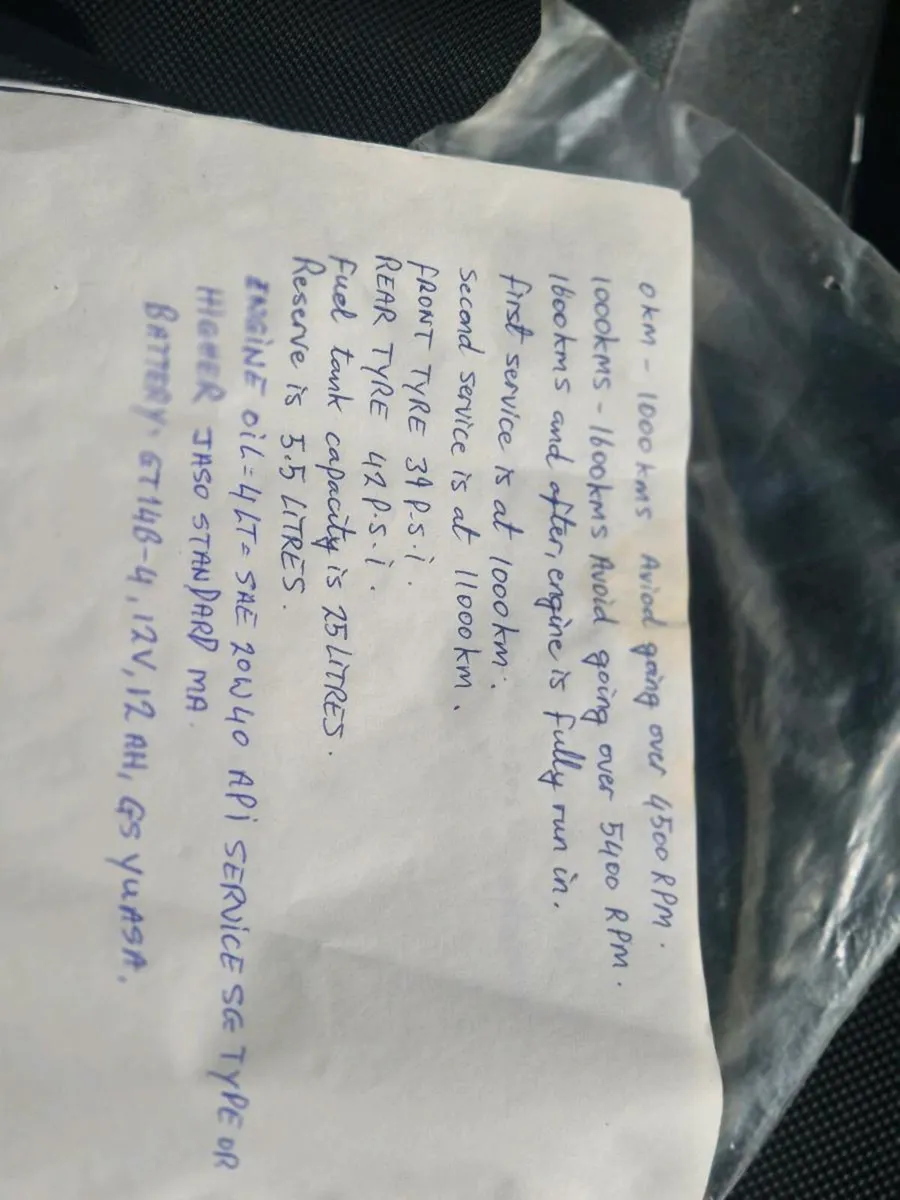 0km - 1000kms Aviod going over 4500 RPM.
1000kms - 1600kms Avoid going over 5400 RPM.
1600kms and after, engine is fully run in.
first service is at 1000km.
second service is at 11000km.
FRONT TYRE 39 P.S.i.
REAR TYRE 42 P.S.i.
Fuel tank capacity is 25 LiTRES.
Reserve is 5.5 LiTRES.
ENGiNE OiL = 4LT = SAE 20W40 APi SERViCE SG TYPE OR
HIGHER JASO STANDARD MA.
BATTERY. GT14B-4, 12V, 12 AH, GS YUASA.